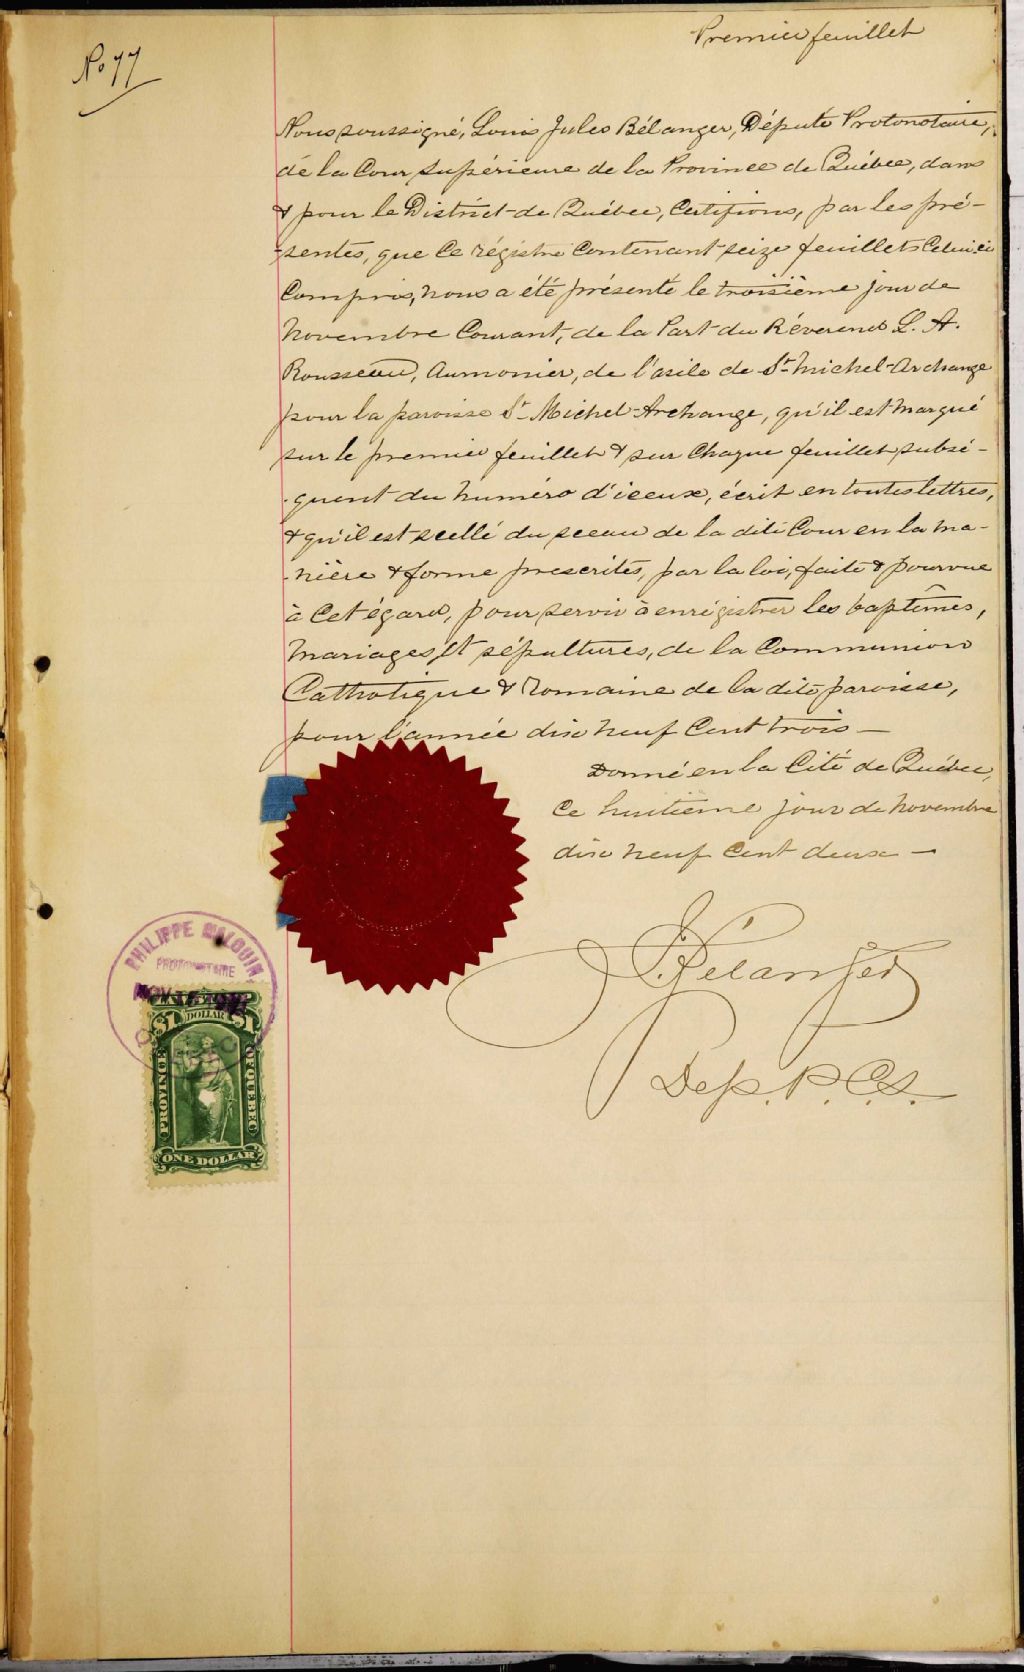 Premier feuillet
No 77
Nous soussigné, Louis Jules Bélanger, Député Protonotaire,
de la Cour Supérieure de la Province de Québec, dans
& pour le District de Québec, Certifions, par les pré-
-sentes, que ce régistre Contenant seize feuillets Celui ci
Compris, nous a été présenté le troisième jour de
Novembre Courant, de la Part du Réverend L. A.
Rousseau, Aumonier, de l'asile de St Michel-Archange
pour la paroisse St Michel Archange, qu'il est marqué
sur le premier feuillet & sur Chaque feuillet subsé-
-quent du numéro d'iceux, écrit en toutes lettres,
& qu'il est scellé du sceau de la dite Cour en la ma-
-nière & forme prescrites, par la loi, faite & pourvue
à Cet égard, pour servir à enrégistrer les baptêmes,
Mariages, et sépultures, de la Communion
Catholique & Romaine de la dite paroisse,
pour l'année dix neuf Cent trois —
Donné en la Cité de Québec,
Ce huitième jour de Novembre
dix neuf Cent deux —
J. Bélanger
Dep. P. C. S.
PHILIPPE MALOUIN,
PROTONOTAIRE
NOV
$1 DOLLAR $1
PROVINCE OF QUEBEC
ONE DOLLAR